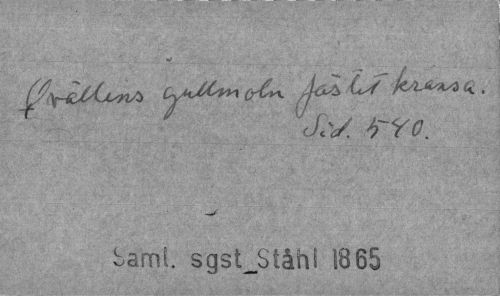 Qvällens gullmoln fästet kransa.
Sid. 540.
Saml. sgst_Ståhl 1865